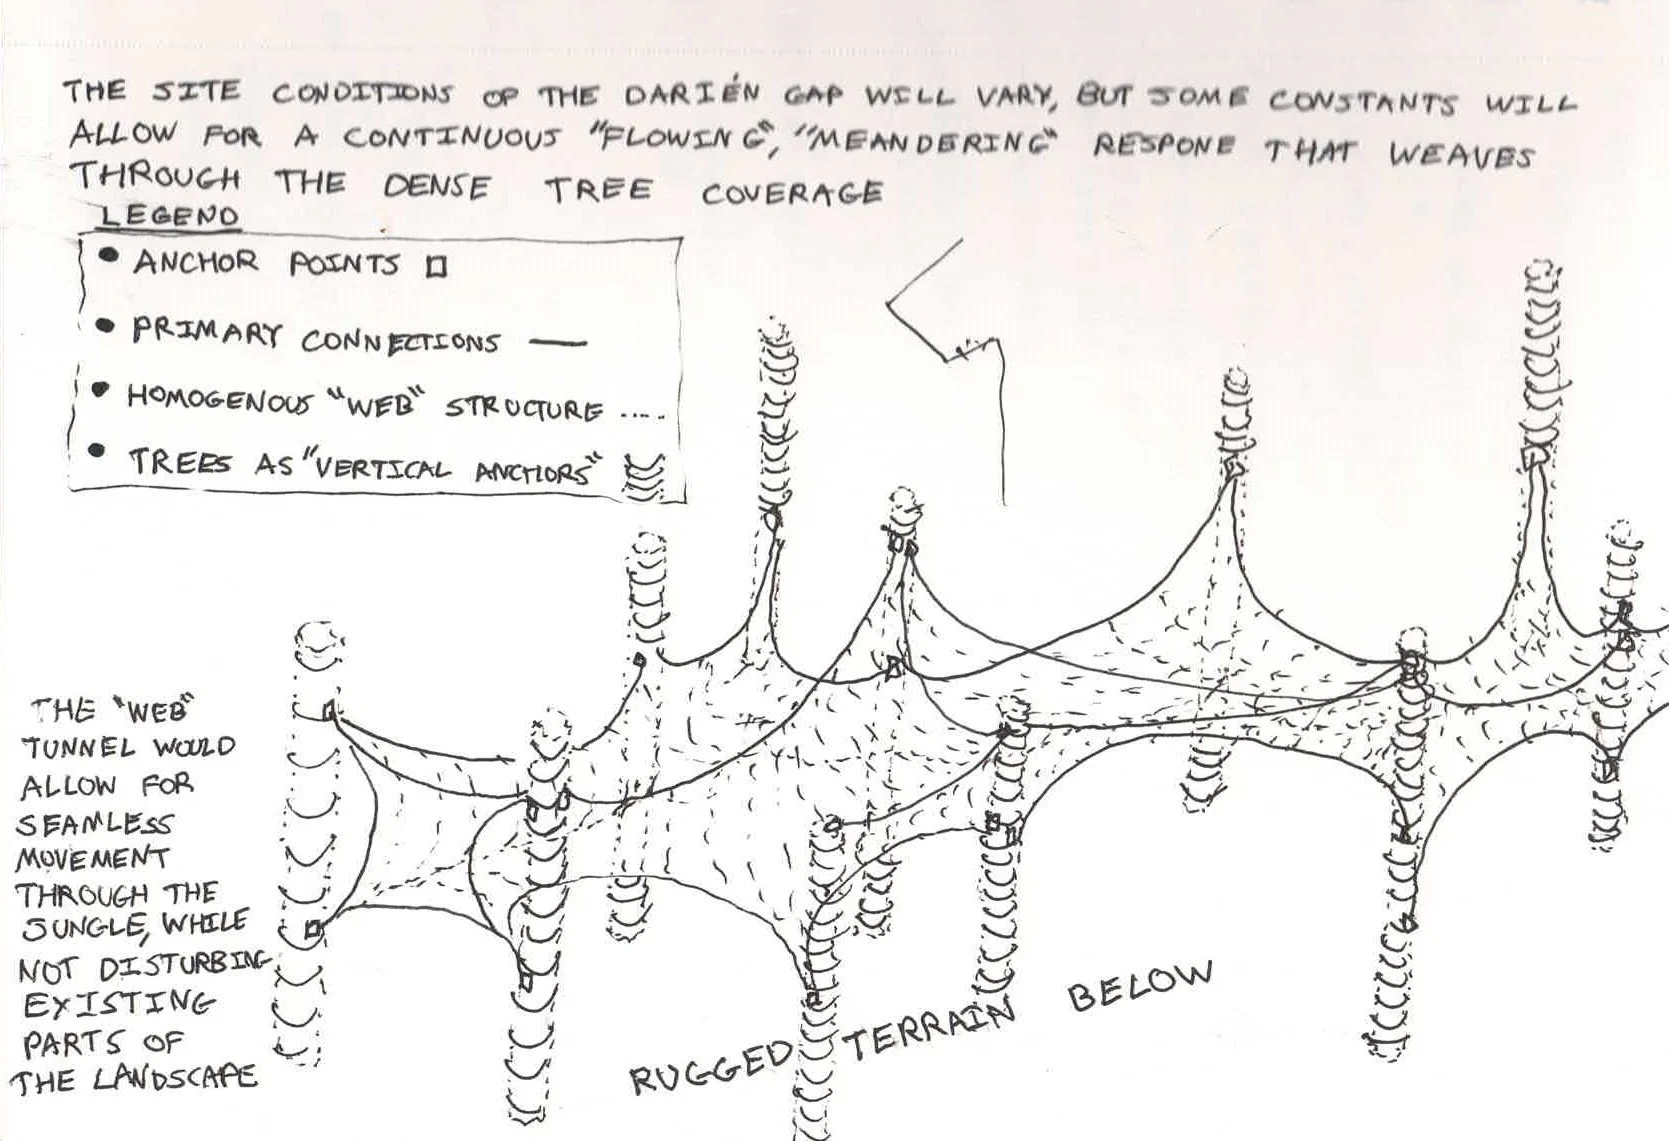 THE SITE CONDITIONS OP THE DARIÉN GAP WILL VARY, BUT SOME CONSTANTS WILL
ALLOW FOR A CONTINUOUS "FLOWING", "MEANDERING" RESPONE THAT WEAVES
THROUGH THE DENSE TREE COVERAGE
LEGEND
• ANCHOR POINTS □
• PRIMARY CONNECTIONS —
• HOMOGENOUS "WEB" STRUCTURE ....
• TREES AS "VERTICAL ANCHORS"
THE "WEB"
TUNNEL WOULD
ALLOW FOR
SEAMLESS
MOVEMENT
THROUGH THE
JUNGLE, WHILE
NOT DISTURBING
EXISTING
PARTS OF
THE LANDSCAPE
RUGGED TERRAIN BELOW